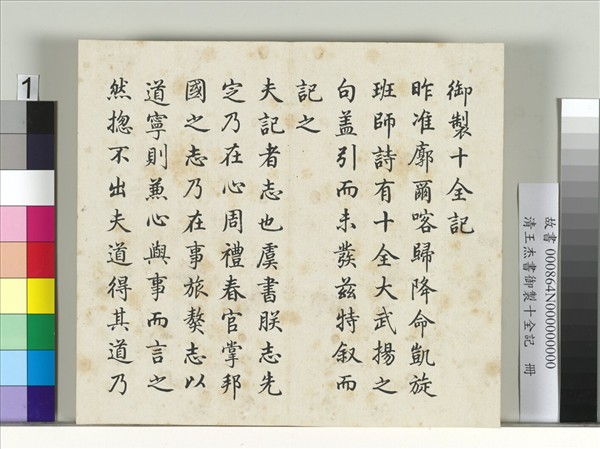 御製十全記
昨准廓爾喀歸降命凱旋
班師詩有十全大武揚之
句盖引而未發兹特叙而
記之
夫記者志也虞書朕志先
定乃在心周禮春官掌邦
國之志乃在事旅獒志以
道寧則兼心與事而言之
然揔不出夫道得其道乃
故書 000864N000000000
清王杰書御製十全記 冊
1